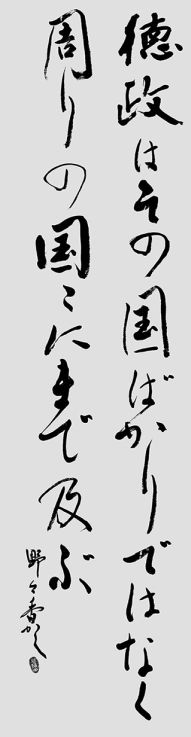 徳政はその国ばかりではなく
周りの国々にまで及ぶ
野々香かく